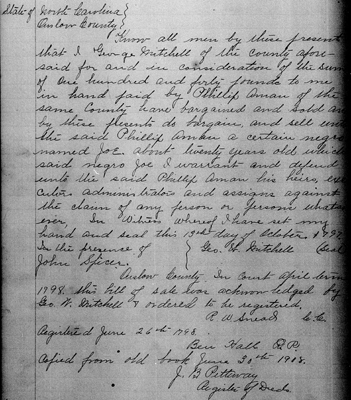 State of North Carolina }
Onslow County }
Know all men by these present
that I George Mitchell of the county afore-
said for and in consideration of the sum
of One hundred and fifty pounds to me
in hand paid by Phillip Aman of the
same County have bargained and sold an
by these presents do bargain, and sell unto
the said Phillip Aman a certain negro
named Joe about twenty years old which
said negro Joe I warrant and defend
unto the said Phillip Aman his heirs, exe
cutors administrators and assigns against
the claim of any person or persons whatso
ever. In Witness whereof I have set my
hand and seal this 13th day of October 1797
In the presence of } Geo. W. Mitchell (Seal
John Spicer }
Onslow County In Court April term
1798 this bill of sale was acknowledged by
Geo. W. Mitchell & ordered to be registered,
R W Snead C.C.
Registered June 26th 1798.
Ben Hall P.R.
Copied from old book June 30th 1918.
J. B Petteway
Register of Deeds